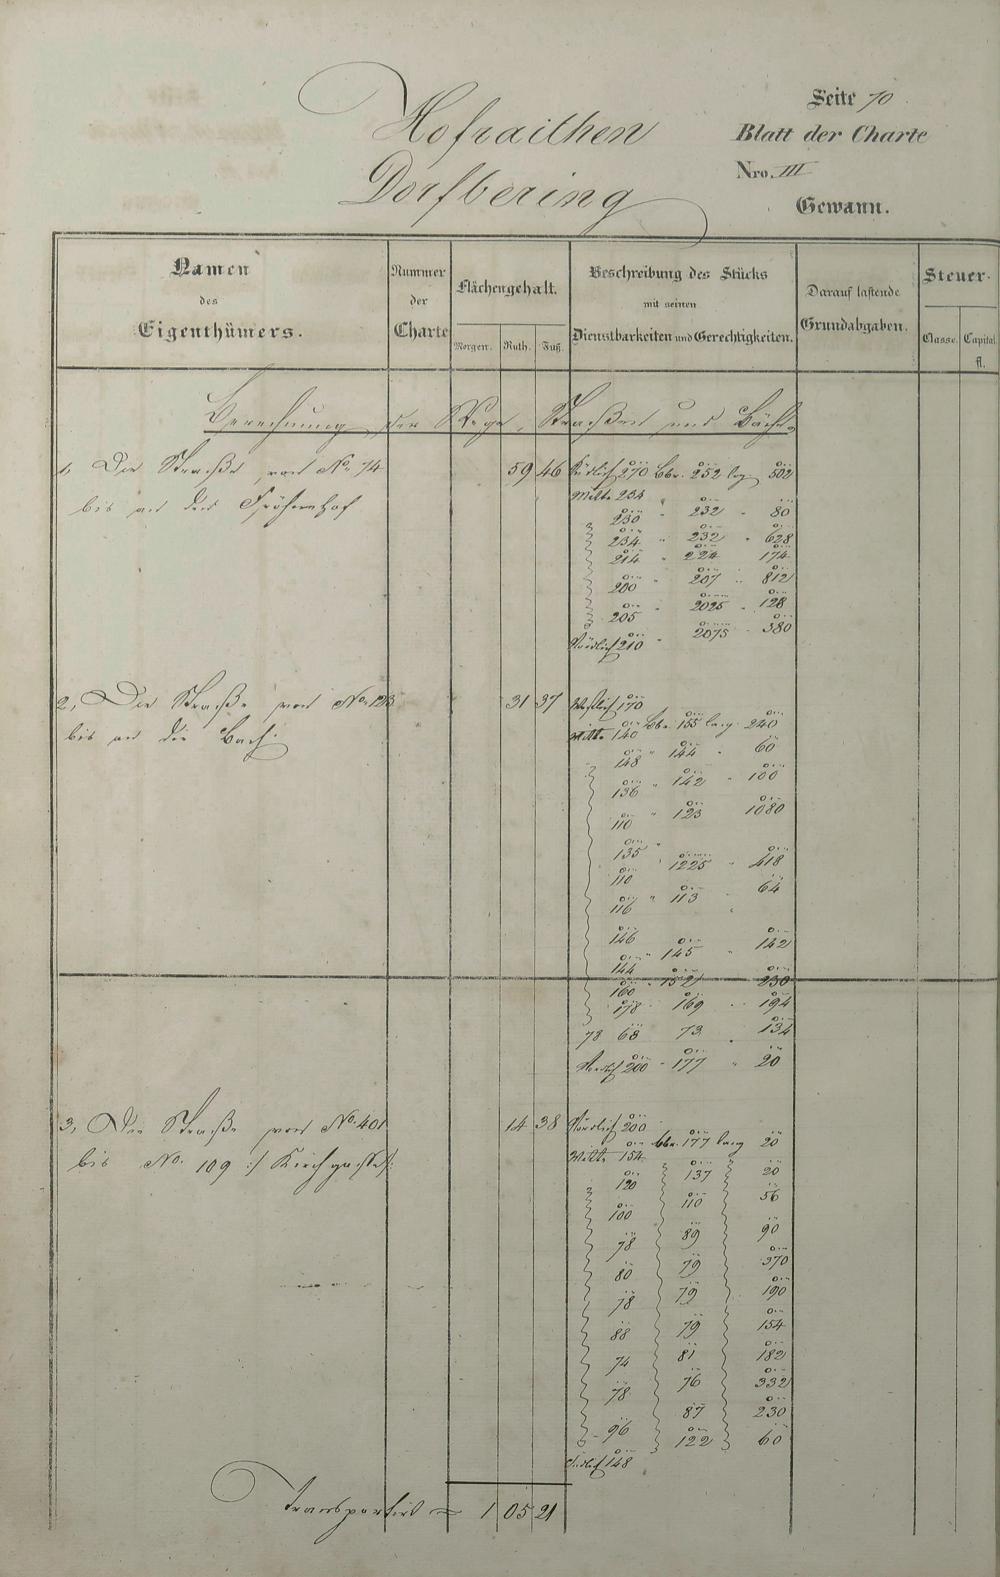 Hofraithen
Dorfbering
Seite 70
Blatt der Charte
Nro. III
Gewann.
Namen
des
Eigenthümers.
Nummer
der
Charte
Flächengehalt.
Morgen. Ruth. Fuß.
Beschreibung des Stücks
mit seinen
Dienstbarkeiten und Gerechtigkeiten.
Darauf lastende
Grundabgaben.
Steuer-
Classe. Capital
fl.
Berechnung der Wege, Straßen und Bäche
1, Die Straße von No. 74 59 46 Südlich 270 br. 252 lag 502
bis an den
Mitte 234
230 232 80
234 232 628
214 224 174
200 207 812
205 2025 128
Nördlich 210 2075 380
2, Die Straße von No. 123 31 37 Westlich 170
bis an die Bach
Mitte 140 br. 155 lang 240
148 144 60
136 142 100
110 123 1080
135
110 1225 418
116 113 64
146
144 145 142
160 152 230
178 169 194
78 68 73 134
Nördlich 200 177 20
3, Die Straße von No. 401 14 38 Nördlich 200
bis No. 109 :/ Kirchgasse /:
Mitte 154 br. 177 lang 20
120 137 20
100 110 56
78 89 90
80 79 370
78 79 190
88 79 154
74 81 182
78 76 332
87 230
96 122 60
Südlich 148
Transportirt = 1 05 21